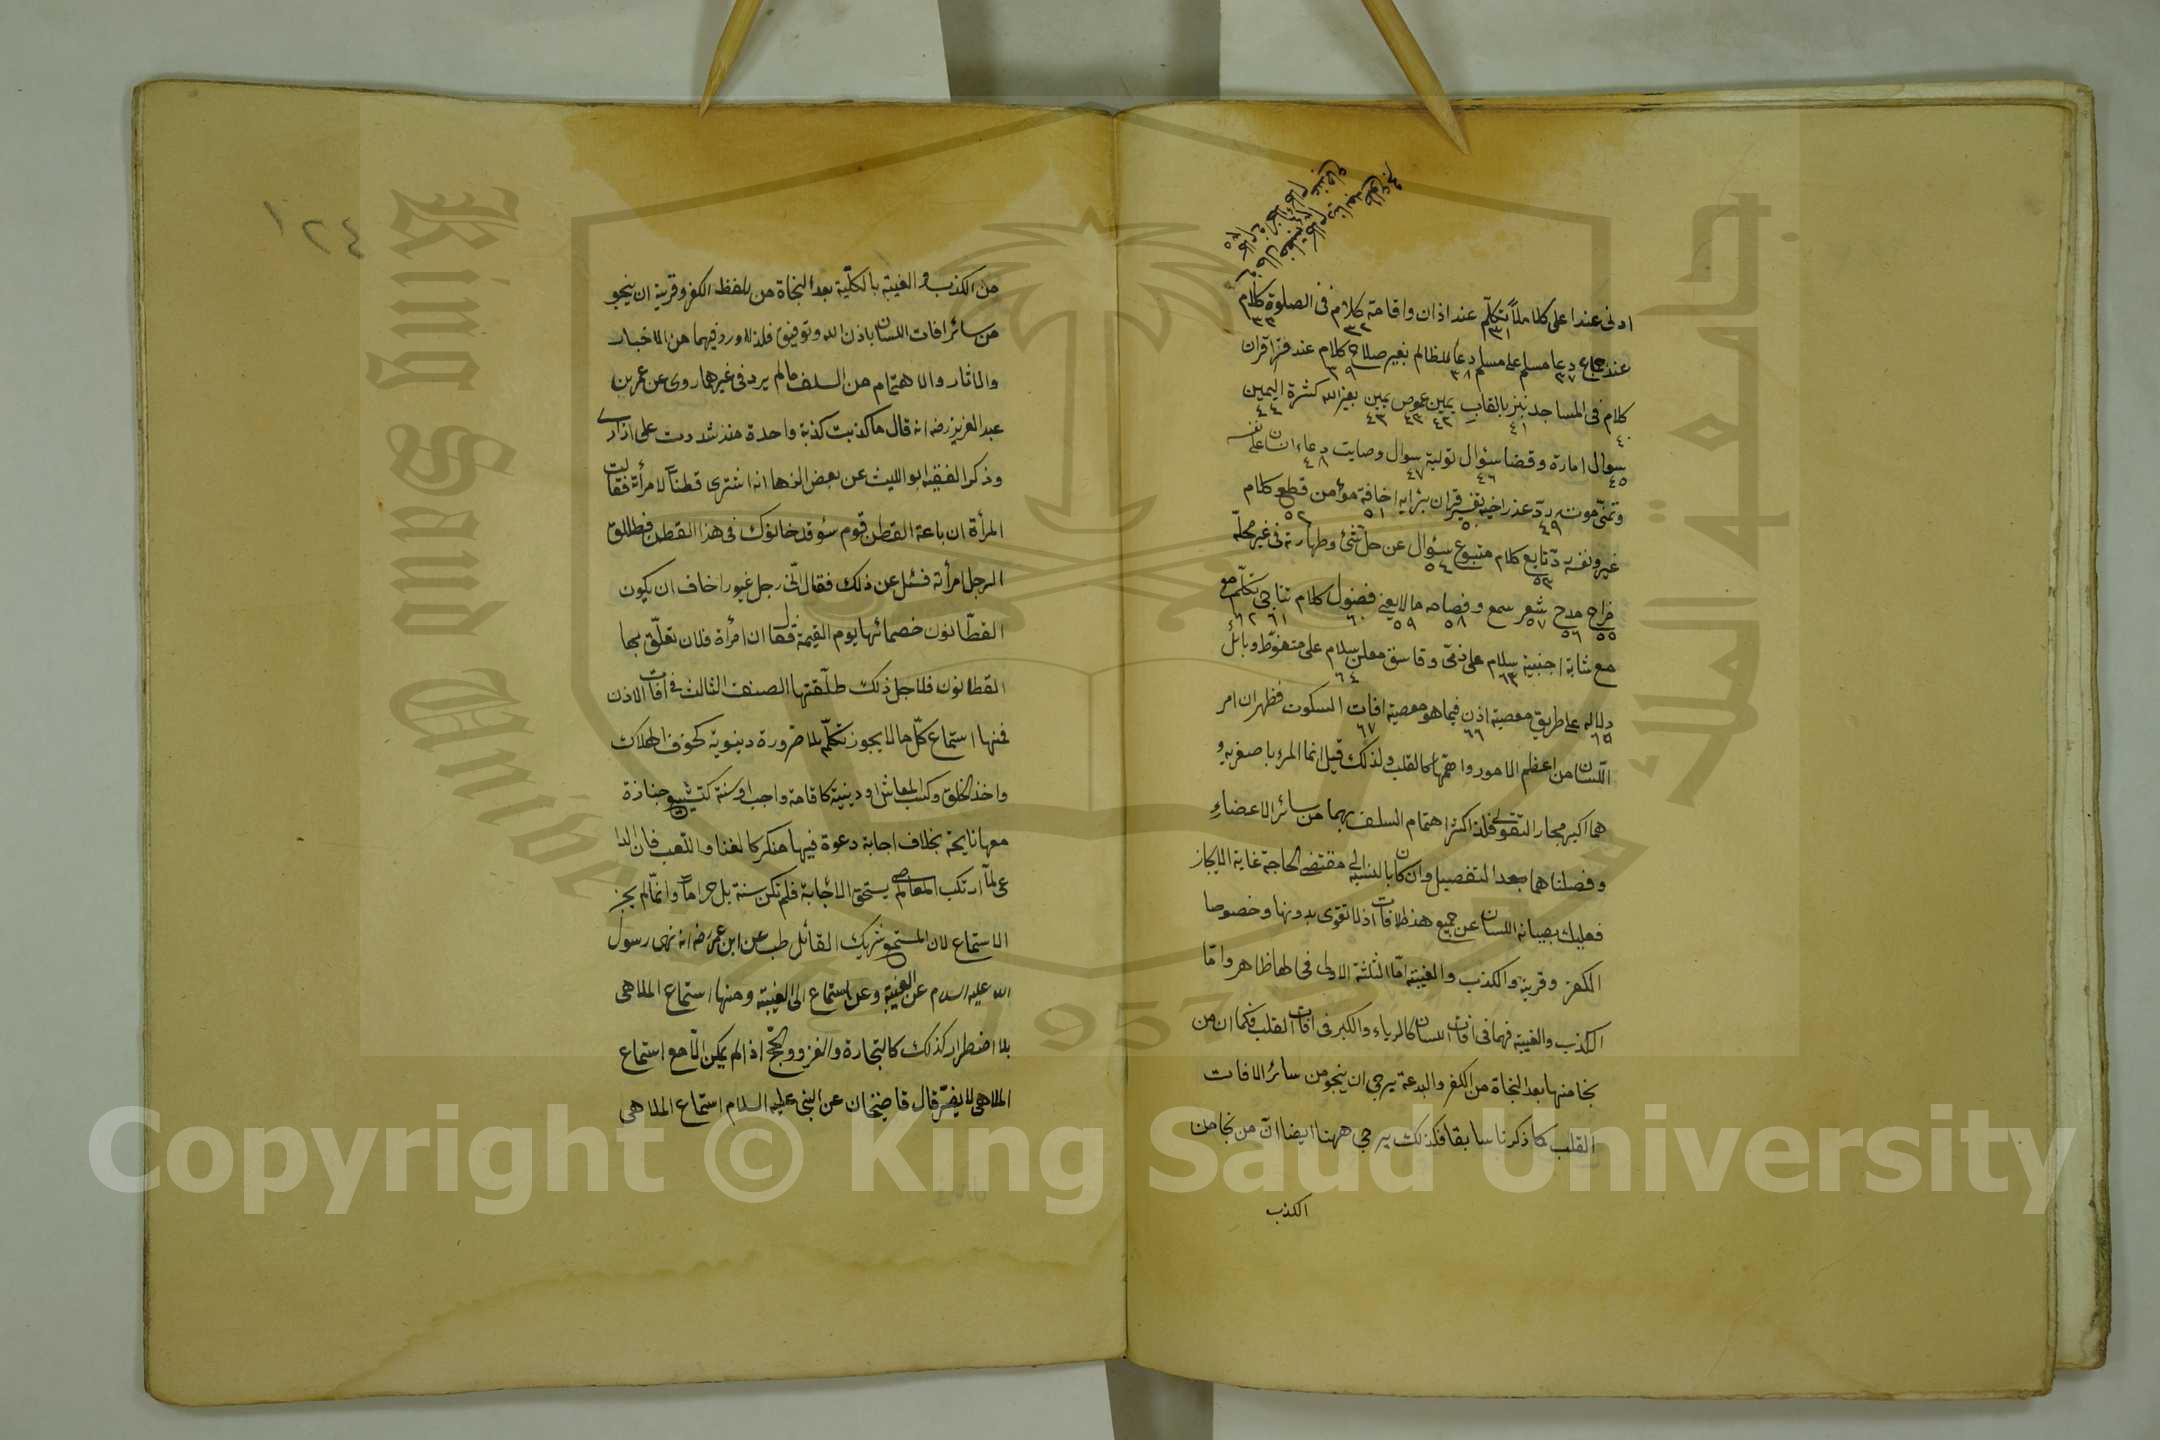 ادنى عند اعلى كلاما لما تكلم عند اذان واقامة كلام فى الصلوة كلام
٣١ ٣٢ ٣٣
عند جماع دعا مسلم على مسلم دعا للظالم بغير صلاح كلام عند قرآن
٣٧ ٣٨ ٣٩
كلام فى المساجد نبز بالقاب يمين غموص يمين بغير الله كثرة اليمين
٤٠ ٤١ ٤٢ ٤٣ ٤٣ ٤٤
سوال امارة وقضا سؤال تولية سوال وصايت دعاء انسان على نفسه
٤٥ ٤٦ ٤٧ ٤٨
وتمنى موت رد عذر اخيه تفسير قران برايه اخافة مؤمن قطع كلام
٤٩ ٥٠ ٥١ ٥٢
غير ونفسه رد تابع كلام متبوع سؤال عن حل شئ وطهارته فى غير محله
٥٣ ٥٤
مزاح مدح شعر سجع وفصاحه ما لا يعنى فضول كلام تناجى تكلم مع
٥٥ ٥٦ ٥٧ ٥٨ ٥٩ ٦٠ ٦١ ٦٢
مع شابة اجنبية سلام على ذمى وفاسق معلن سلام على متغوط وبائل
٦٣ ٦٤
دلالة على طريق معصية اذن فيما هو معصية افات السكوت فظهر ان امر
٦٥ ٦٦ ٦٧
اللسان من اعظم الامور واهمها كالقلب ولذلك قيل انما المرء باصغريه و
هما اكبر مجار التقوى فلذا كثر اهتمام السلف بهما من سائر الاعضاء
وفصلناهما بعد التفصيل وان كان بالنسبة الى مقتضى الحاجة غاية الايجاز
فعليك بصيانة اللسان عن جميع هذه الافات اذ لا تقوى بدونها وخصوصا
الكفر وقرينه والكذب والغيبة اما الثلثة الاولى فحالها ظاهر واما
الكذب والغيبة فهما فى افات اللسان كالرياء والكبر فى افات القلب فكما ان من
نجا منها بعد النجاة من الكفر والبدعة يرجى ان ينجو من سائر الافات
القلب كما ذكرنا سابقا فكذلك يرجى ههنا ايضا ان من نجا من
الكذب
١٢٤
من الكذب والغيبة بالكلية بعد النجاة من تلفظ الكفر وقرينه ان ينجو
من سائر افات اللسان باذن الله وتوفيق فلذا ورد فيهما من الاخبار
والاثار والاهتمام من السلف ما لم يرد فى غيرهما روى عن عمر بن
عبد العزيز رضه انه قال ما كذبت كذبة واحدة منذ شددت على ازارى
وذكر الفقيه ابو الليث عن بعض الزهاد انه اشترى قطنا لامرأة فقالت
المرأة ان باعة القطن قوم سوء قد خانوك فى هذا القطن فطلق
الرجل امرأته فسئل عن ذلك فقال انى رجل غيور اخاف ان يكون
القطانون خصمائها يوم القيمة فقال ان امرأة فلان تعلق بها
القطانون فلاجل ذلك طلقتها الصنف الثالث فى افات الاذن
فمنها استماع كل ما لا يجوز تكلم بلا ضرورة دينوية كخوف الهلاك
واخذ الخلق وكسب المعاش او دينية كاقامة واجب او سنة كتشييع جنازة
معها نايحة بخلاف اجابة دعوة فيها منكر كالغنا واللعب فان الدا
عى لما ارتكب المعاصى لم يستحق الاجابة فلم تكن سنة بل حراما وانما لم يجز
الاستماع لان المستمع شريك القائل طب عن ابن عمر رضه انه نهى رسول
الله عليه السلام عن الغيبة وعن استماع الى الغيبة ومنها استماع الملاهى
بلا اضطرار كذلك كالتجارة والغزو والحج اذا لم يمكن الا مع استماع
الملاهى لا يضر قال قاضيخان عن النبى عليه السلام استماع الملاهى
Copyright © King Saud University
King Saud University
جامعة الملك سعود
1957